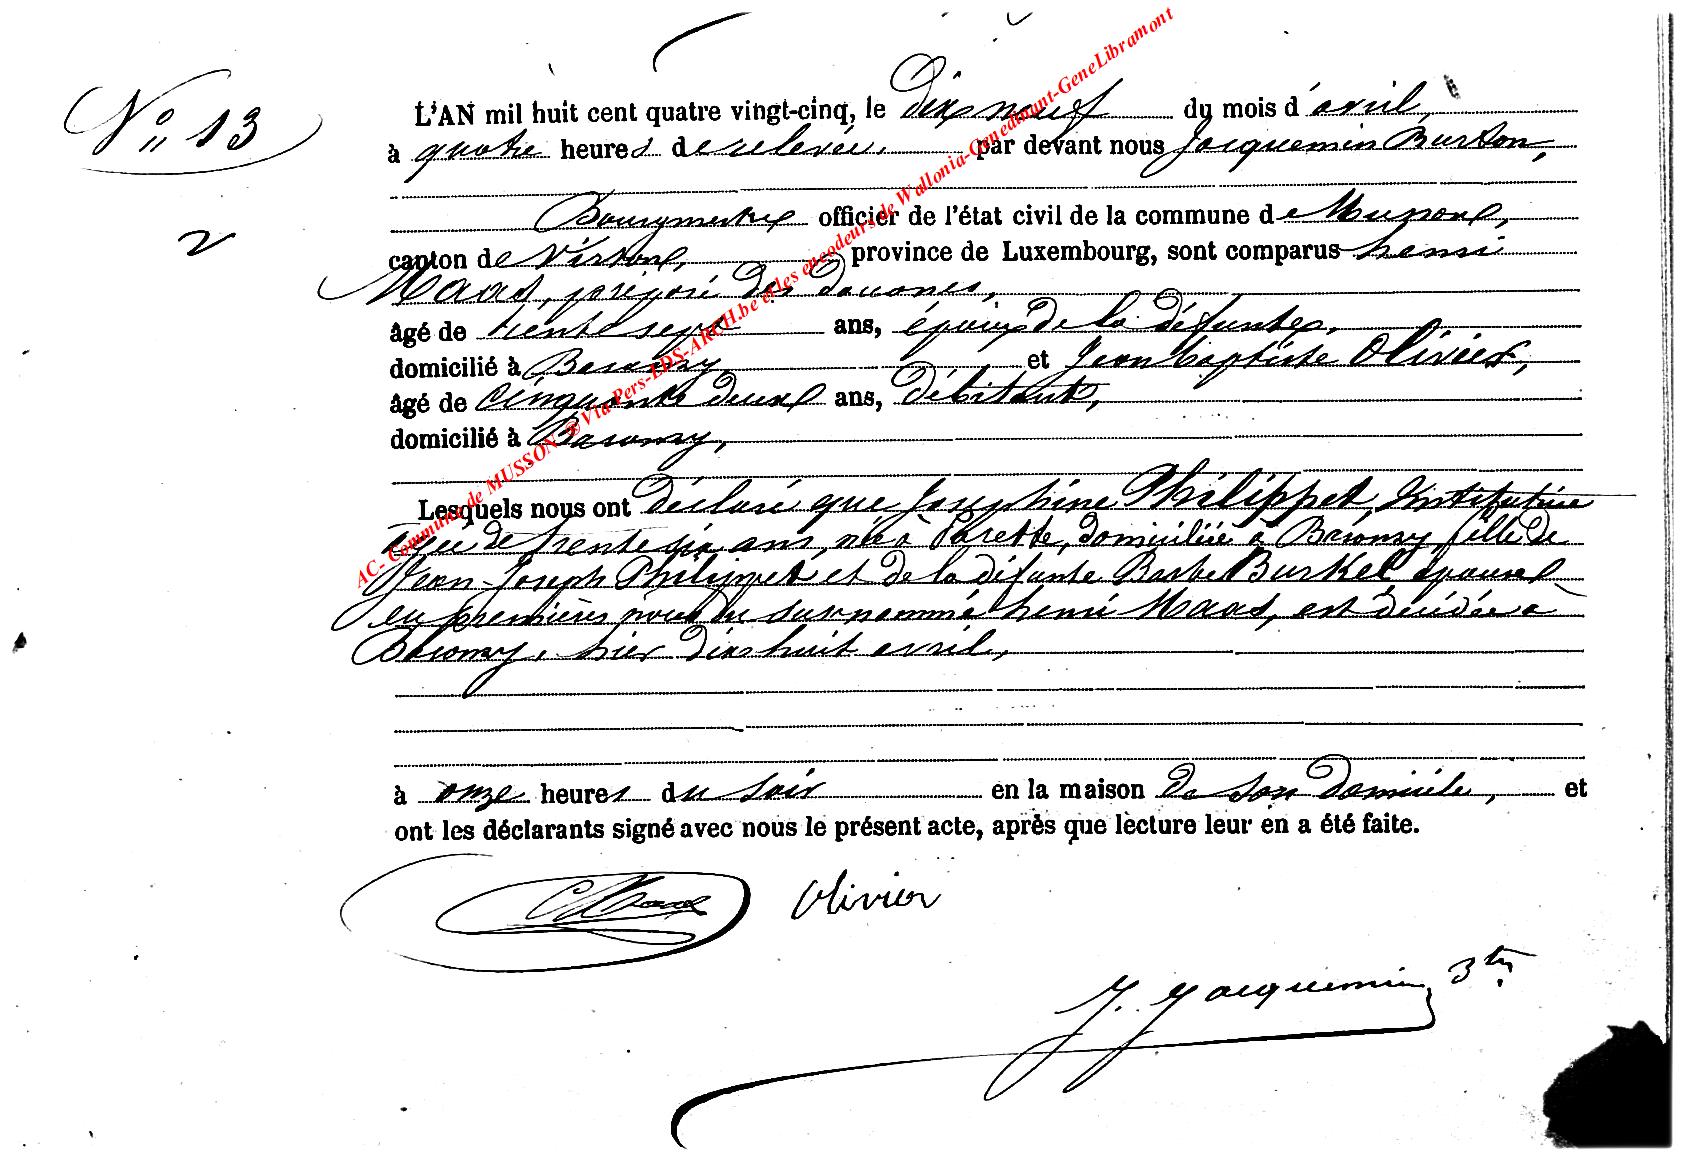 N° 13
L'AN mil huit cent quatre vingt-cinq, le dix neuf du mois d'avril,
à quatre heures de relevée, par devant nous Jacquemin Burton,
Bourgmestre officier de l'état civil de la commune de Musson,
canton de Virton, province de Luxembourg, sont comparus henri
Maas, préposé des douanes,
âgé de trente sept ans, époux de la défunte,
domicilié à Baranzy et Jean baptiste Olivier,
âgé de cinquante deux ans, débitant,
domicilié à Baranzy,
Lesquels nous ont déclaré que Josephine Philippet, Institutrice
agée de trente six ans, née à Parette, domiciliée à Baranzy, fille de
Jean-Joseph Philippet et de la défunte Barbe Burkel, épouse
en premières noces du surnommé henri Maas, est décédée à
Baranzy, hier dix huit avril,
à onze heures du soir en la maison de son domicile, et
ont les déclarants signé avec nous le présent acte, après que lecture leur en a été faite.
Maas Olivier
J. Jacquemin
AC- Commune de MUSSON @Via Pers-LDS-ARCH.be et les encodeurs de Wallonia-Genedinant-GeneLibramont